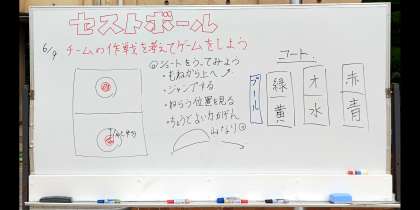 セストボール
6/9
チームの作戦を考えてゲームをしよう
シュートをうってみよう
・もねから上へ
・ジャンプする
・ねらう位置を見る
・ちょうどよい力かげん
山なり
コート
プール
緑 オ 赤
黄 水 青